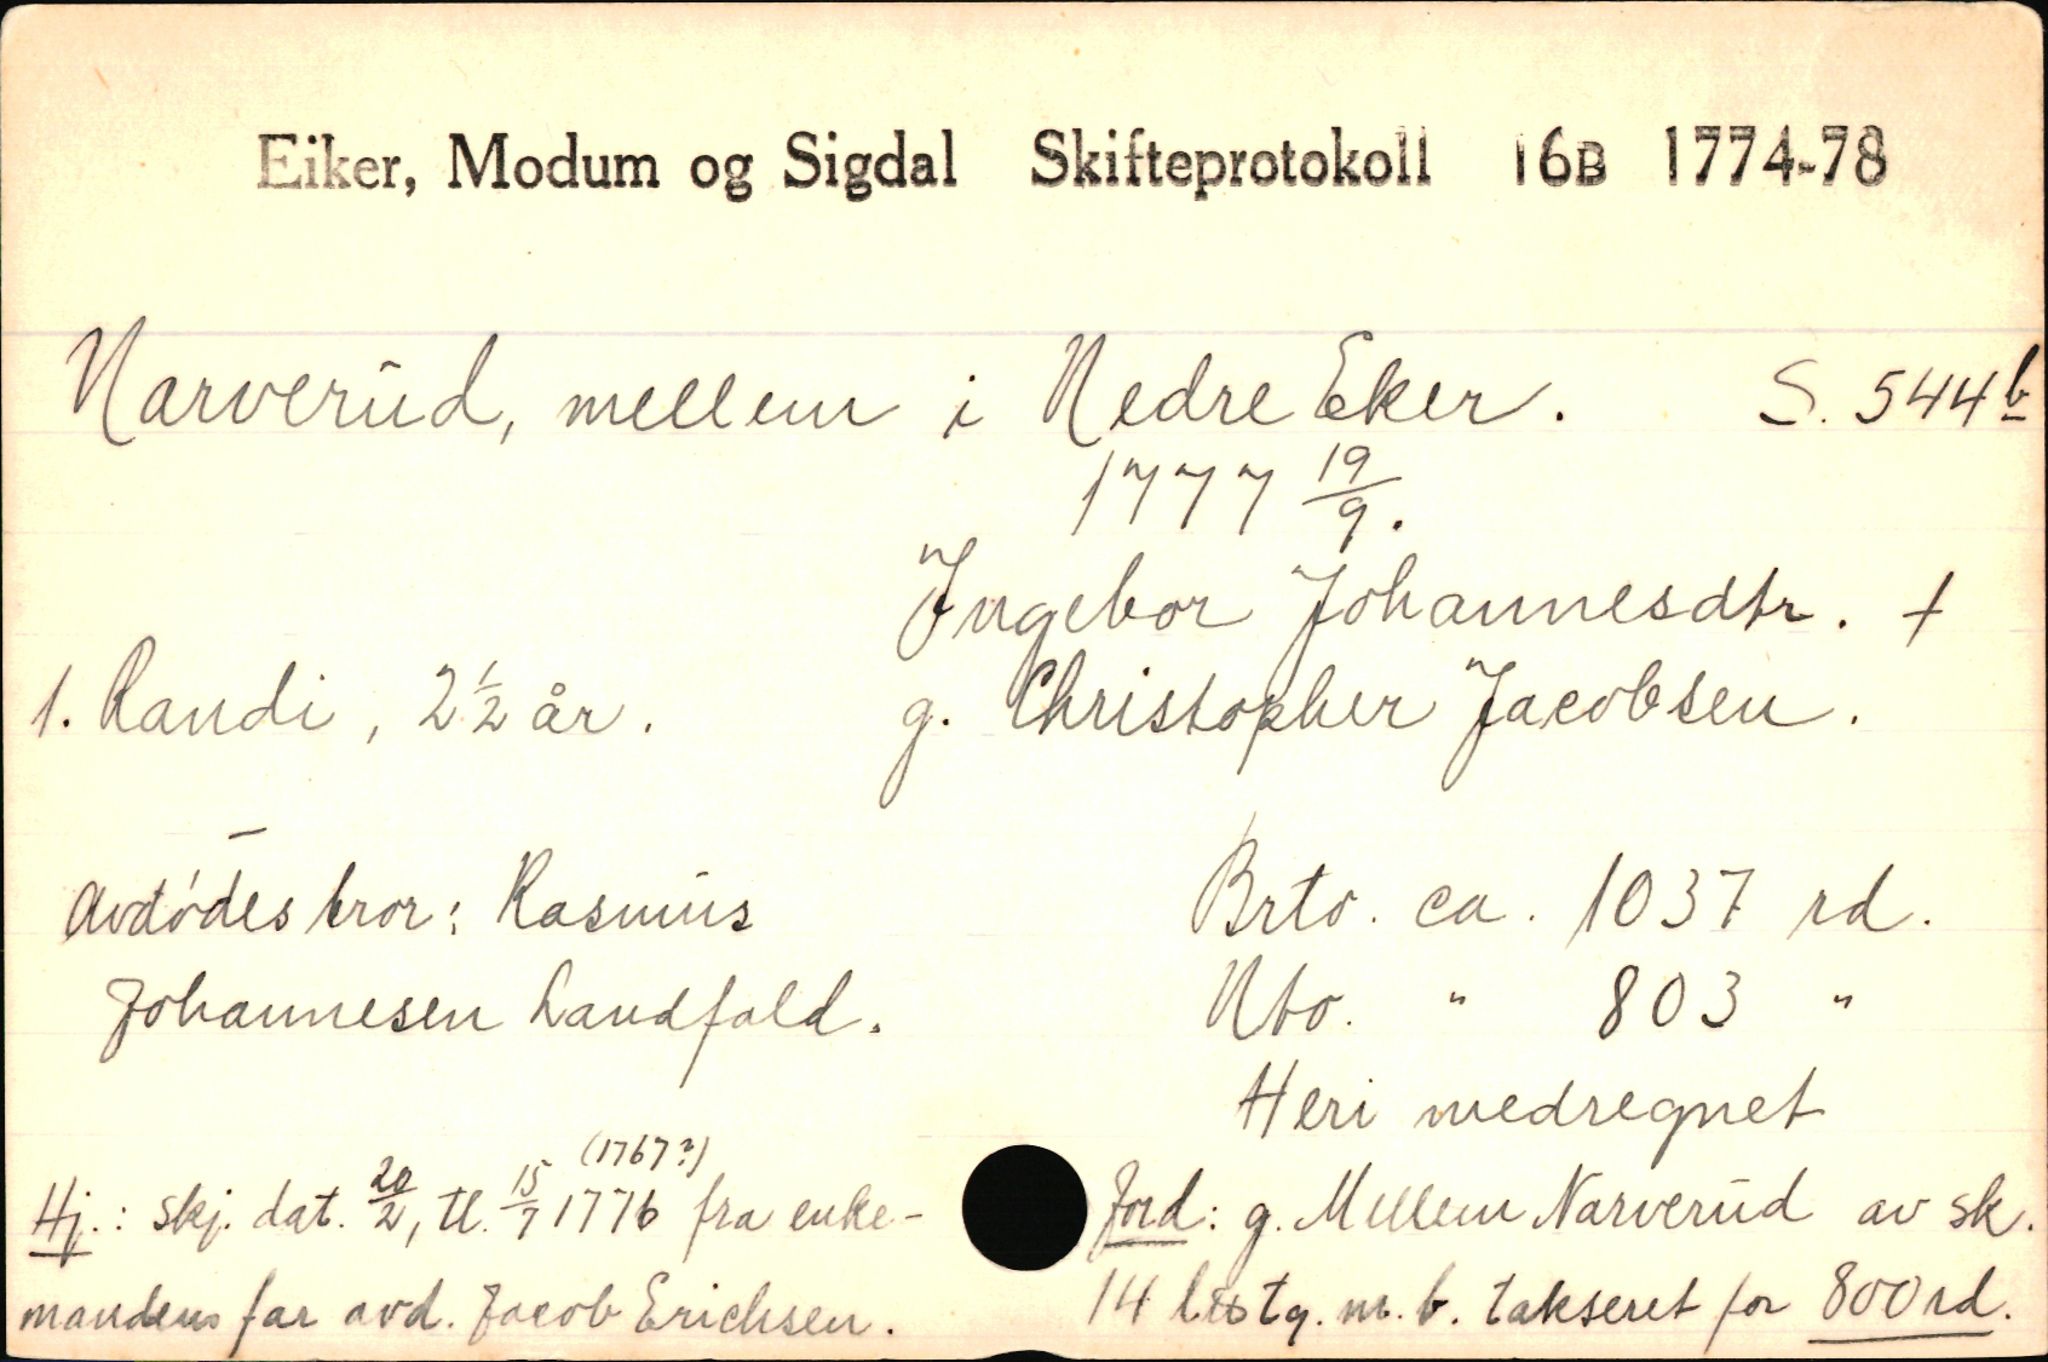 Eiker, Modum og Sigdal Skifteprotokoll 16B 1774-78
Narverud, mellem i Nedre Eker. S. 544b
1777 19/9.
Ingebor Johannesdtr. +
1. Randi, 2 1/2 år. g. Christopher Jacobsen.
Avdødes bror: Rasmus
Johannesen Landfald.
Brto. ca. 1037 rd.
Nto. " 803 "
Heri medregnet
(1767?)
Hj.: skj. dat. 20/2, tl. 15/7 1776 fra enke-
mandens far avd. Jacob Erichsen.
Jord: g. Mellem Narverud av sk.
14 tg. m. b. takseret for 800 rd.